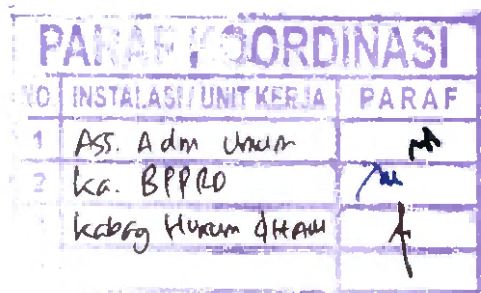 PARAF KOORDINASI
NO INSTALASI / UNIT KERJA PARAF
1 Ass. Adm Umum
2 Ka. BPPRD
Kabag Hukum dHAM